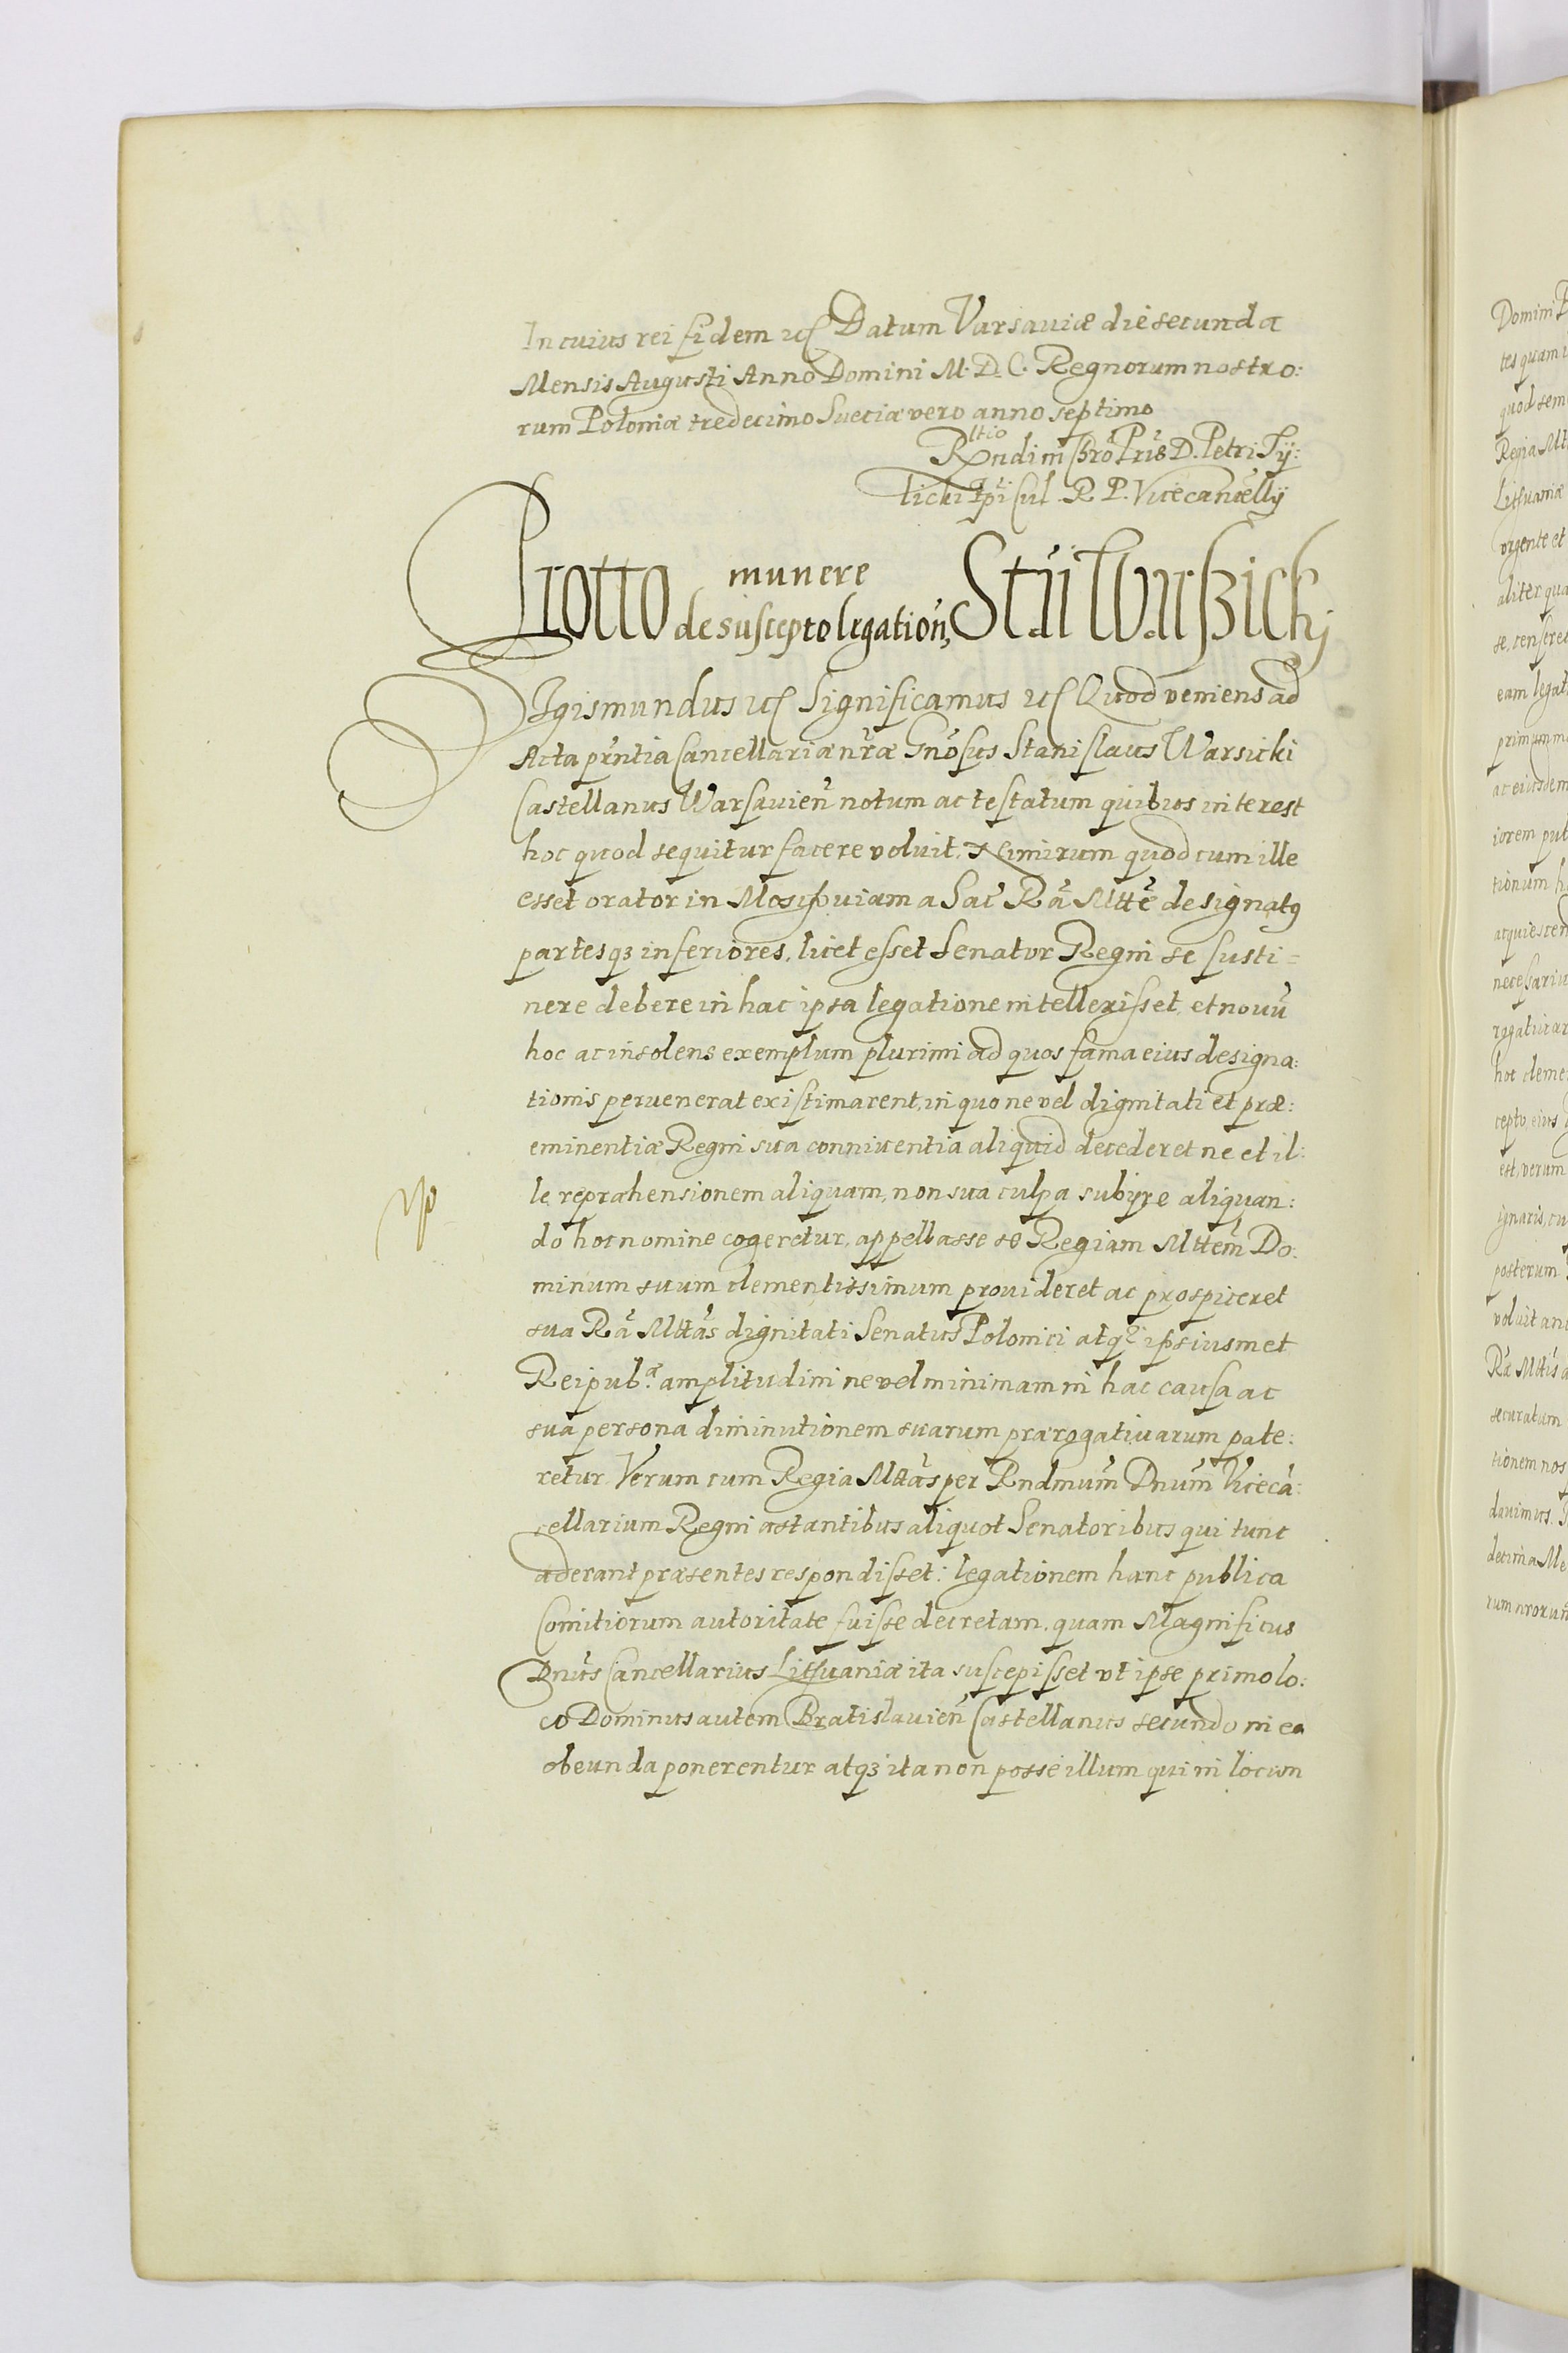 In cuius rei fidem etc Datum Varsauiæ die secunda
Mensis Augusti Anno Domini M. D. C. Regnorum nostro:
rum Poloniæ tredecimo Sueciæ vero anno septimo
Rltio
Rndi in Chrō Pris D. Petri Ty:
licki Epi Cul. R. P. Vicecancellij
Prottō de suscepto munere legation, Stīi Warszickj
Sigismundus etc Significamus etc Quod veniens ad
Acta prńtia Cancellariæ nr̄æ Gnōsus Stanislaus Warsicki
Castellanus Warsauień notum ac testatum quibus interest
hoc quod sequitur facere voluit. Nimirum quod cum ille
esset orator in Moschouiam a Sac̄ Rā Mtt̄e designatꝯ
partesqꝫ inferiores, licet esset Senator Regni se susti=
nere debere in hac ipsa legatione intellexisset, et nouū
hoc ac insolens exemplum plurimi ad quos fama eius designa:
tionis peruenerat existimarent, in quo ne vel dignitati et præ:
eminentiæ Regni sua conniuentia aliquid decederet ne et il:
le repræhensionem aliquam, non sua culpa subijre aliquan:
do hoc nomine cogeretur, appellasse se Regiam Mttem̄ Do:
minum suum clementissimum prouideret ac prospiceret
sua Rā Mttās dignitati Senatus Polonici atqꝫ ipsiusmet
Reipub.æ amplitudini ne vel minimam in hac causa ac
sua persona diminutionem suarum prærogatiuarum pate:
retur. Verum cum Regia Mttās per Rndmum̄ Dnum̄ Vicecā:
cellarium Regni astantibus aliquot Senatoribus qui tunc
aderant præsentes respondisset: legationem hanc publica
Comitiorum autoritate fuisse decretam, quam Magnificus
Dnūs Cancellarius Lithuaniæ ita suscepisset vt ipse primo lo:
co Dominus autem Bratislauień Castellanus secundo in ea
obeunda ponerentur atqꝫ ita non posse illum qui in locum